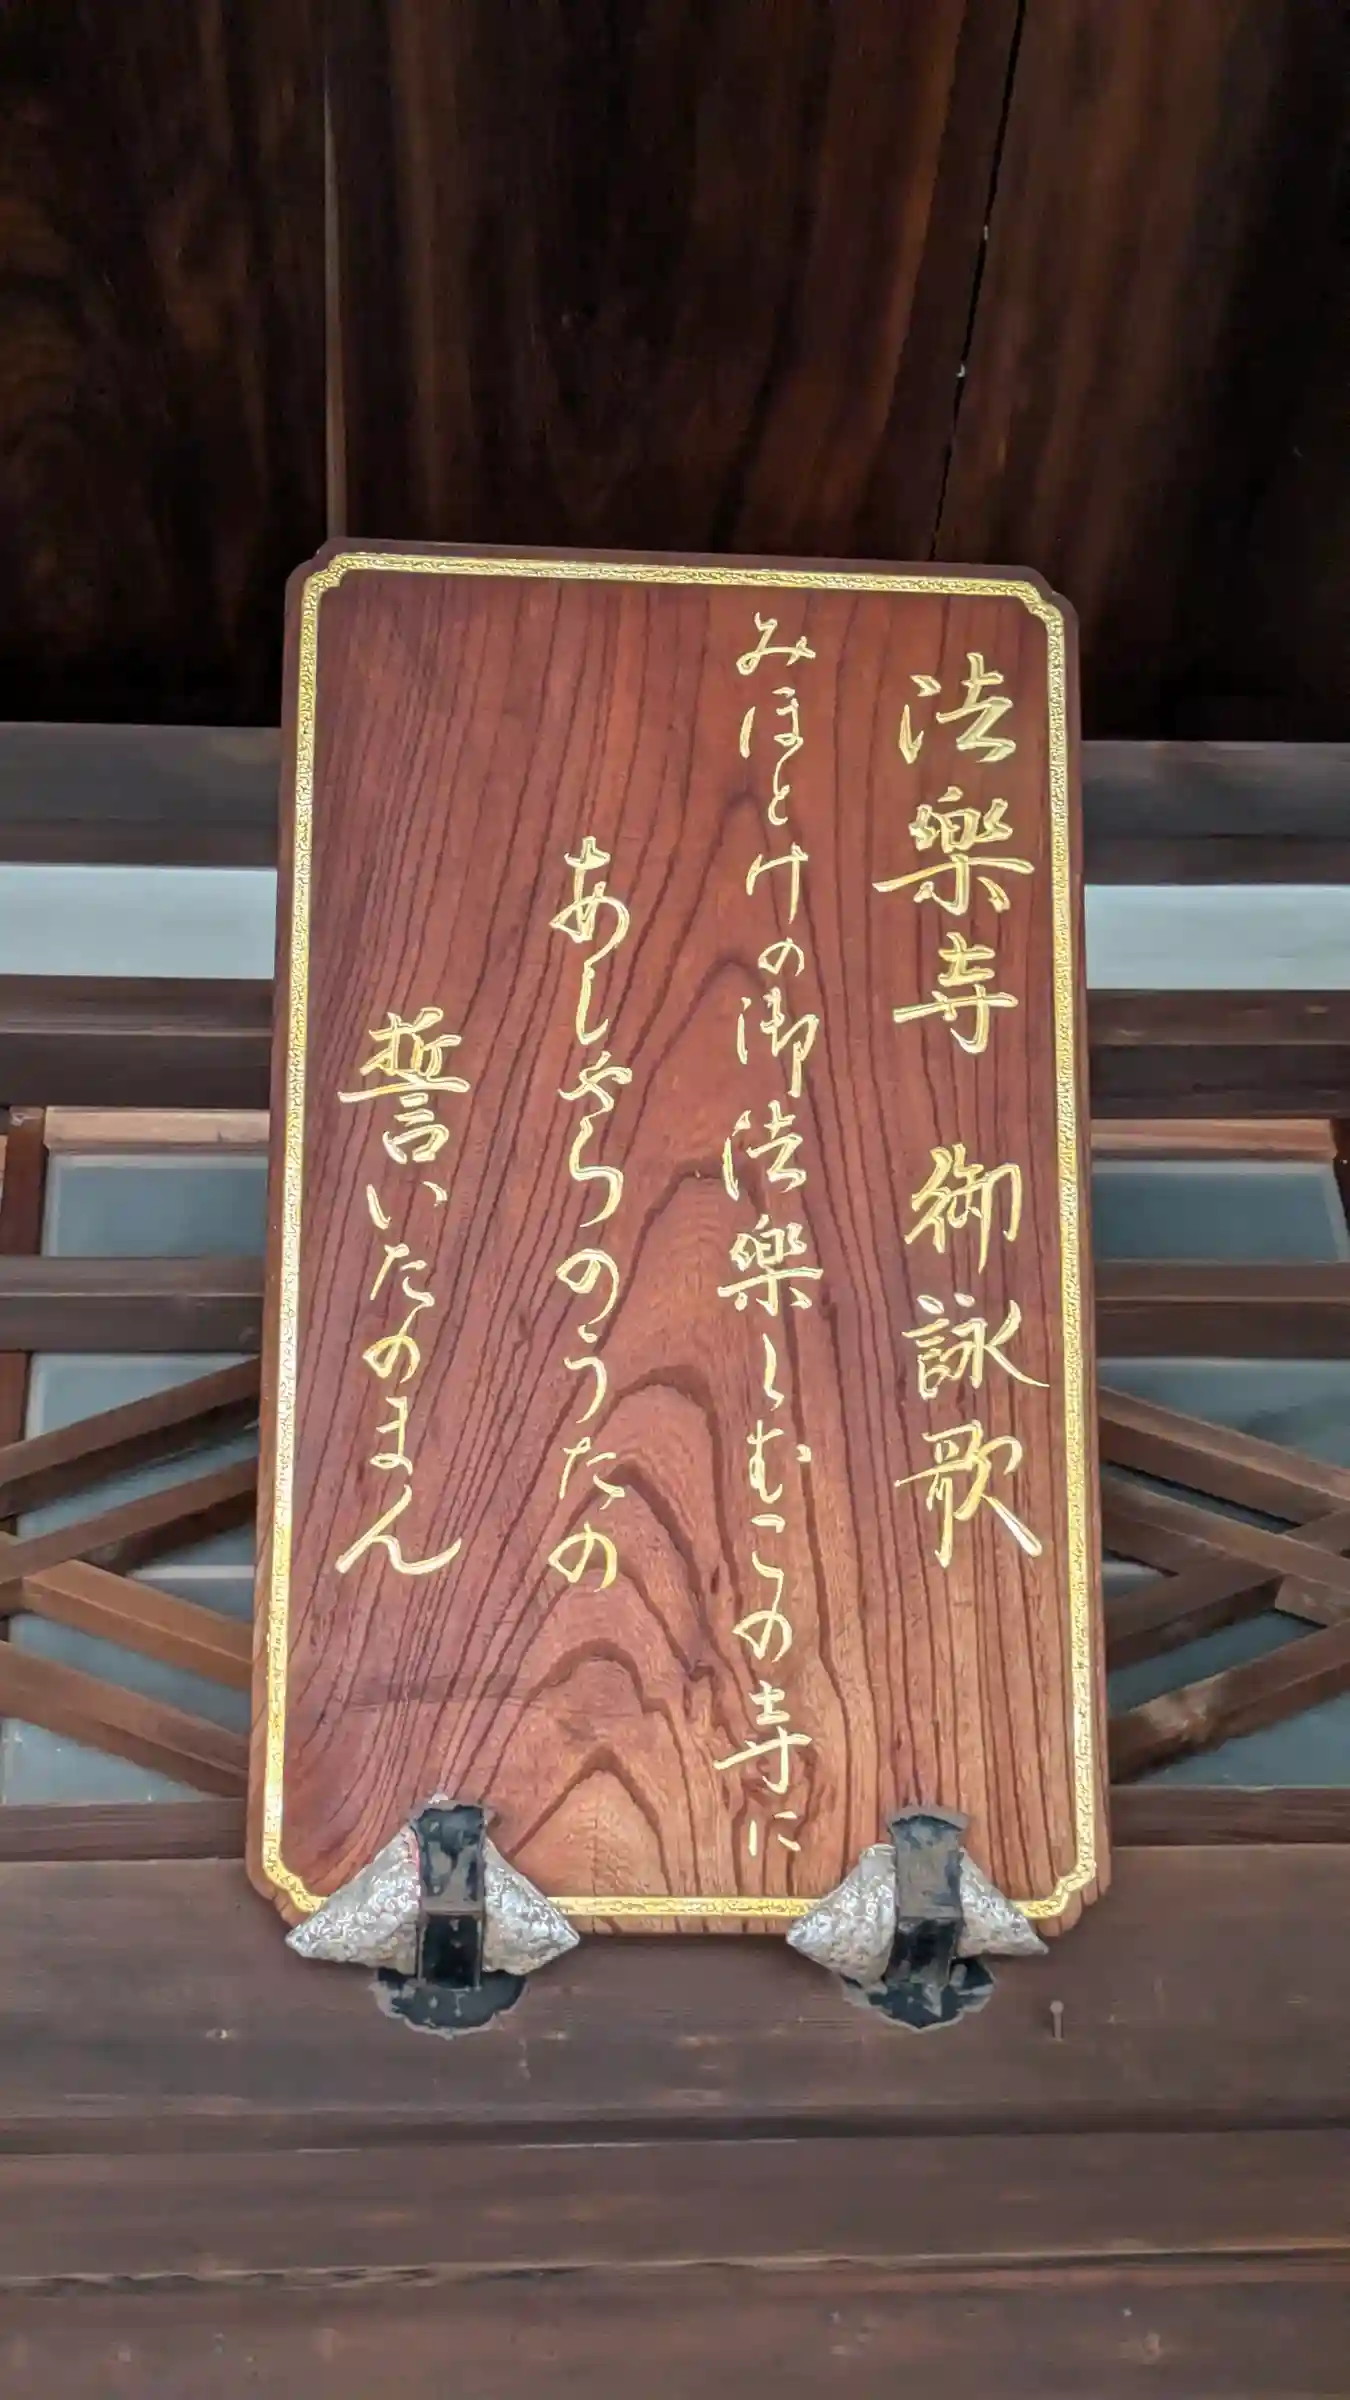 法樂寺 御詠歌
みほとけの御法樂しむこの寺に
あしやらのうたの
誓いたのまん